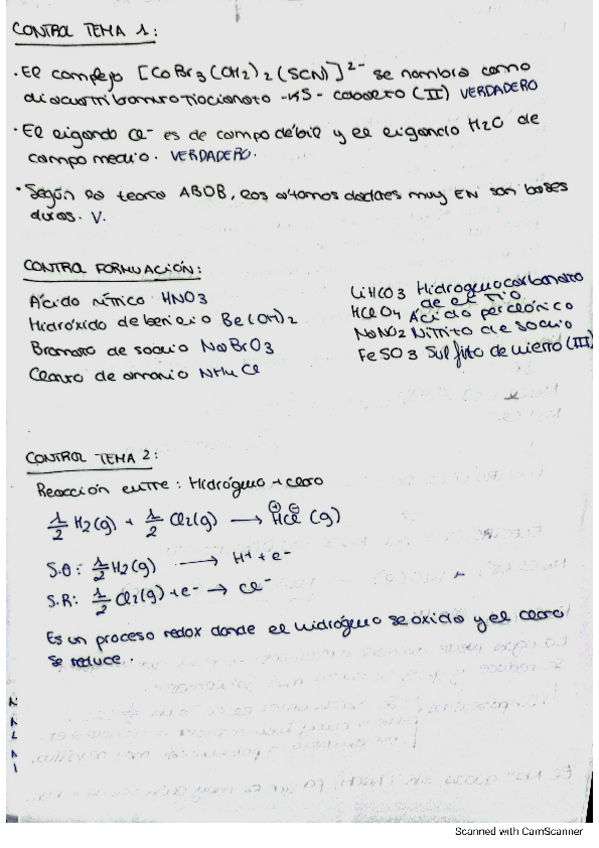 CONTROL TEMA 1:
· El complejo [CoBr3(OH2)2(SCN)]2- se nombra como
diacuotribromotiocianato -κS- cobalto (II) VERDADERO
· El ligando Cl- es de campo débil y el ligando H2O de
campo medio. VERDADERO.
· Según la teoría ABDB, los átomos dadores muy EN son bases
duras. V.
CONTROL FORMULACIÓN:
Ácido nítrico HNO3
Hidróxido de berilio Be(OH)2
Bromato de sodio NaBrO3
Cloruro de amonio NH4Cl
LiHCO3 Hidrogenocarbonato
de litio
HClO4 Ácido perclórico
NaNO2 Nitrito de sodio
FeSO3 Sulfito de hierro (II)
CONTROL TEMA 2:
Reacción entre: Hidrógeno + cloro
1/2 H2(g) + 1/2 Cl2(g) → HCl (g)
+ -
S.O: 1/2 H2(g) → H+ + e-
S.R: 1/2 Cl2(g) + e- → Cl-
Es un proceso redox donde el hidrógeno se oxida y el cloro
se reduce.
Scanned with CamScanner